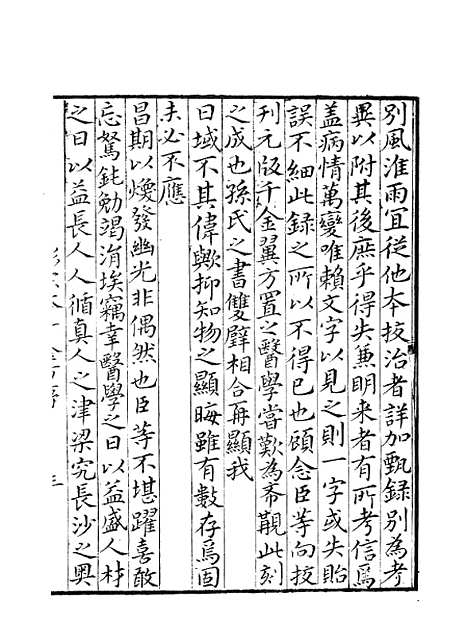 別風淮雨宜從他本挍治者詳加甄錄別為考
異以附其後庶乎得失兼明来者有所考信焉
盖病情萬變唯賴文字以見之則一字或失貽
誤不細此錄之所以不得已也頋念臣等向挍
刊元版千金翼方置之醫學嘗歎為希覯此刻
之成也孫氏之書雙璧相合再顯我
日域不其偉歟抑知物之顯晦雖有數存焉固
未必不應
昌期以煥發幽光非偶然也臣等不堪躍喜敢
忘駑鈍勉竭涓埃竊幸醫學之日以益盛人材
之日以益長人人循真人之津梁究長沙之奥
三